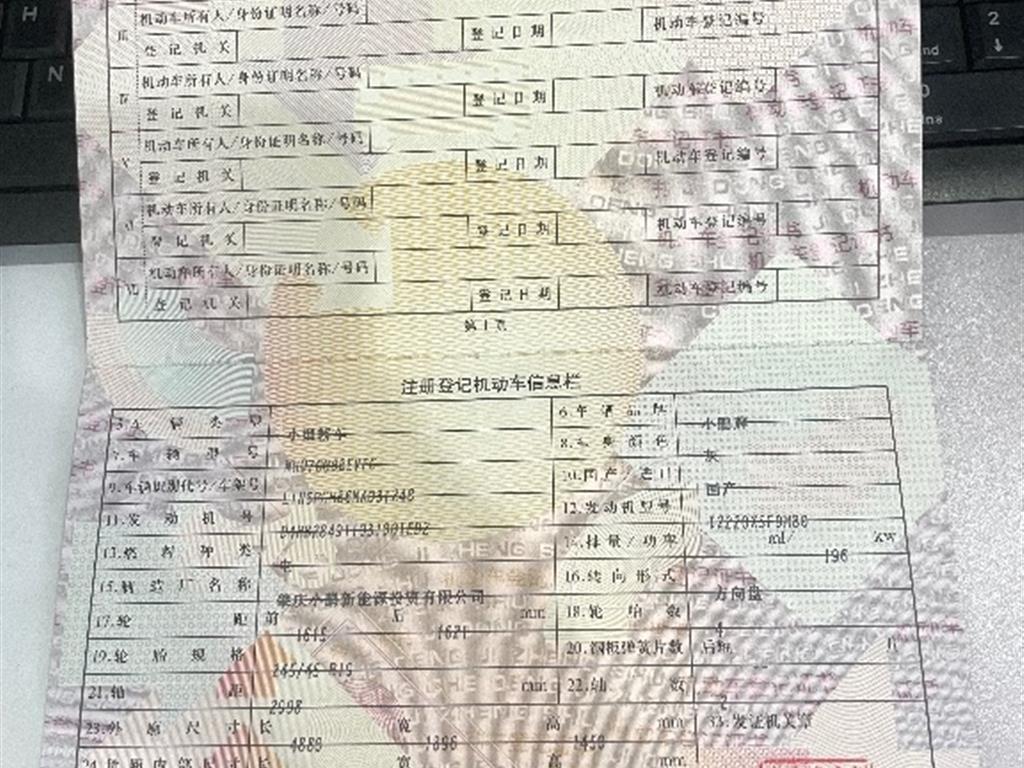 机动车所有人/身份证明名称/号码
登记机关 登记日期 机动车登记编号
机动车所有人/身份证明名称/号码
登记机关 登记日期 机动车登记编号
机动车所有人/身份证明名称/号码
登记机关 登记日期 机动车登记编号
机动车所有人/身份证明名称/号码
登记机关 登记日期 机动车登记编号
机动车所有人/身份证明名称/号码
登记机关 登记日期 机动车登记编号
第1页
注册登记机动车信息栏
5.车辆类型 小型轿车 6.车辆品牌 小鹏牌
7.车辆型号 8.车身颜色 灰
9.车辆识别代号/车架号 10.国产/进口 国产
11.发动机号 12.发动机型号
13.燃料种类 电 14.排量/功率 ml/ 196 kW
15.制造厂名称 肇庆小鹏新能源投资有限公司 16.转向形式 方向盘
17.轮距 前 1615 后 1621 mm 18.轮胎数 4
19.轮胎规格 245/45 R19 20.钢板弹簧片数 后轴 片
21.轴距 2998 mm 22.轴数 2
23.外廓尺寸 长 4889 宽 1896 高 1450 mm 33.发证机关章
长 宽 高 mm